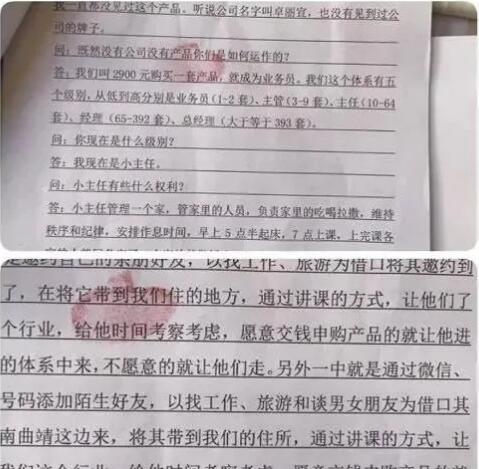 我一直都没见过这个产品。听说公司名字叫卓丽宜，也没有见到过公
司的牌子。
问：既然没有公司没有产品你们是如何运作的？
答：我们叫 2900 元购买一套产品，就成为业务员。我们这个体系有五
个级别，从低到高分别是业务员（1-2 套）、主管（3-9 套）、主任（10-64
套）、经理（65-392 套）、总经理（大于等于 393 套）。
问：你现在是什么级别？
答：我现在是小主任。
问：小主任有些什么权利？
答：小主任管理一个家，管家里的人员，负责家里的吃喝拉撒，维持
秩序和纪律，安排作息时间，早上 5 点半起床，7 点上课，上完课各
是邀约自己的亲朋好友，以找工作、旅游为借口将其邀约到
了，在将它带到我们住的地方，通过讲课的方式，让他们了
个行业，给他时间考察考虑，愿意交钱申购产品的就让他进
的体系中来，不愿意的就让他们走。另外一中就是通过微信、
号码添加陌生好友，以找工作、旅游和谈男女朋友为借口其
南曲靖这边来，将其带到我们的住所，通过讲课的方式，让
我们这个行业，给他时间考察考虑，愿意交钱申购产品的就